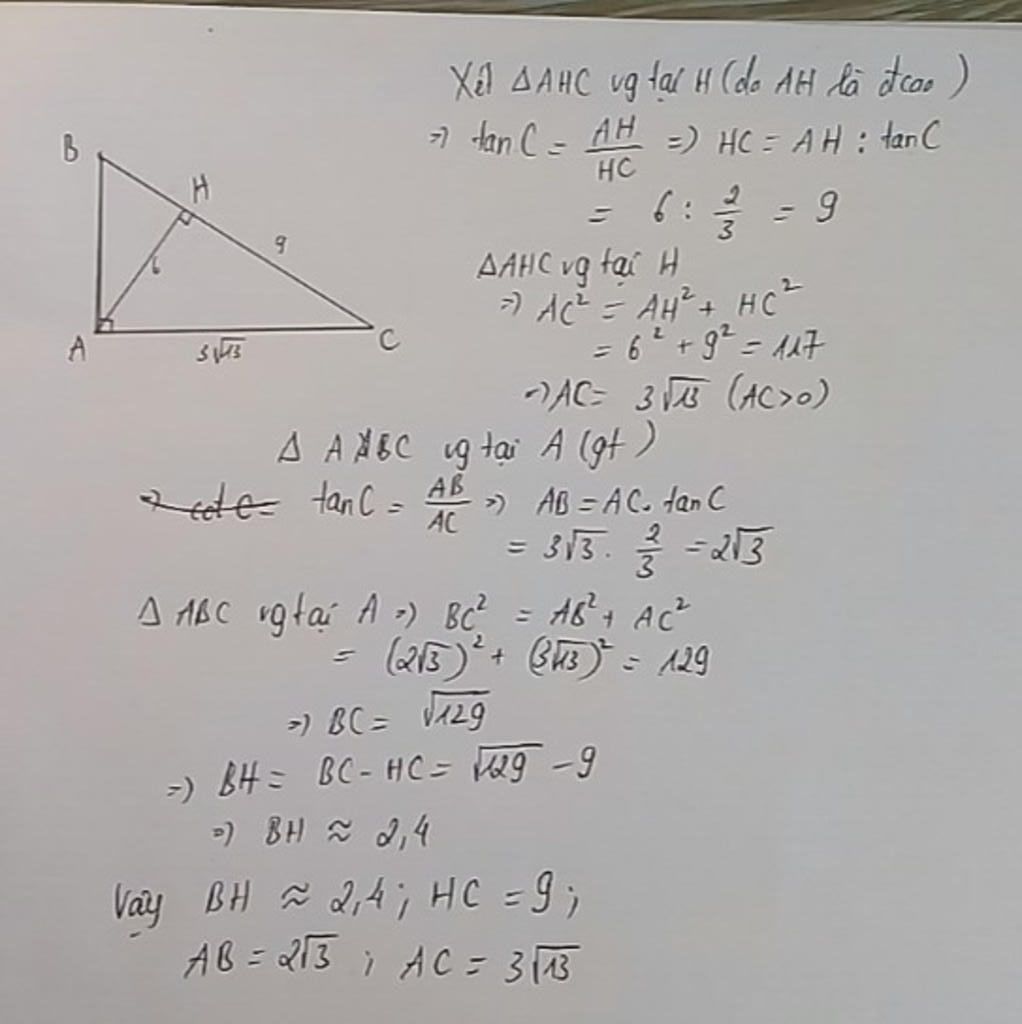 Xét ΔAHC vg tại H (do AH là đcao)
=> tanC = AH/HC => HC = AH : tanC
= 6 : 2/3 = 9
B
H
9
6
A
3√13
C
ΔAHC vg tại H
=> AC² = AH² + HC²
= 6² + 9² = 117
=> AC = 3√13 (AC>0)
Δ ABC vg tại A (gt)
tanC = AB/AC => AB = AC. tanC
= 3√3 . 2/3 = 2√3
Δ ABC vg tại A => BC² = AB² + AC²
= (2√3)² + (3√13)² = 129
=> BC = √129
=> BH = BC - HC = √129 - 9
=> BH ≈ 2,4
Vậy BH ≈ 2,4 ; HC = 9 ;
AB = 2√3 ; AC = 3√13